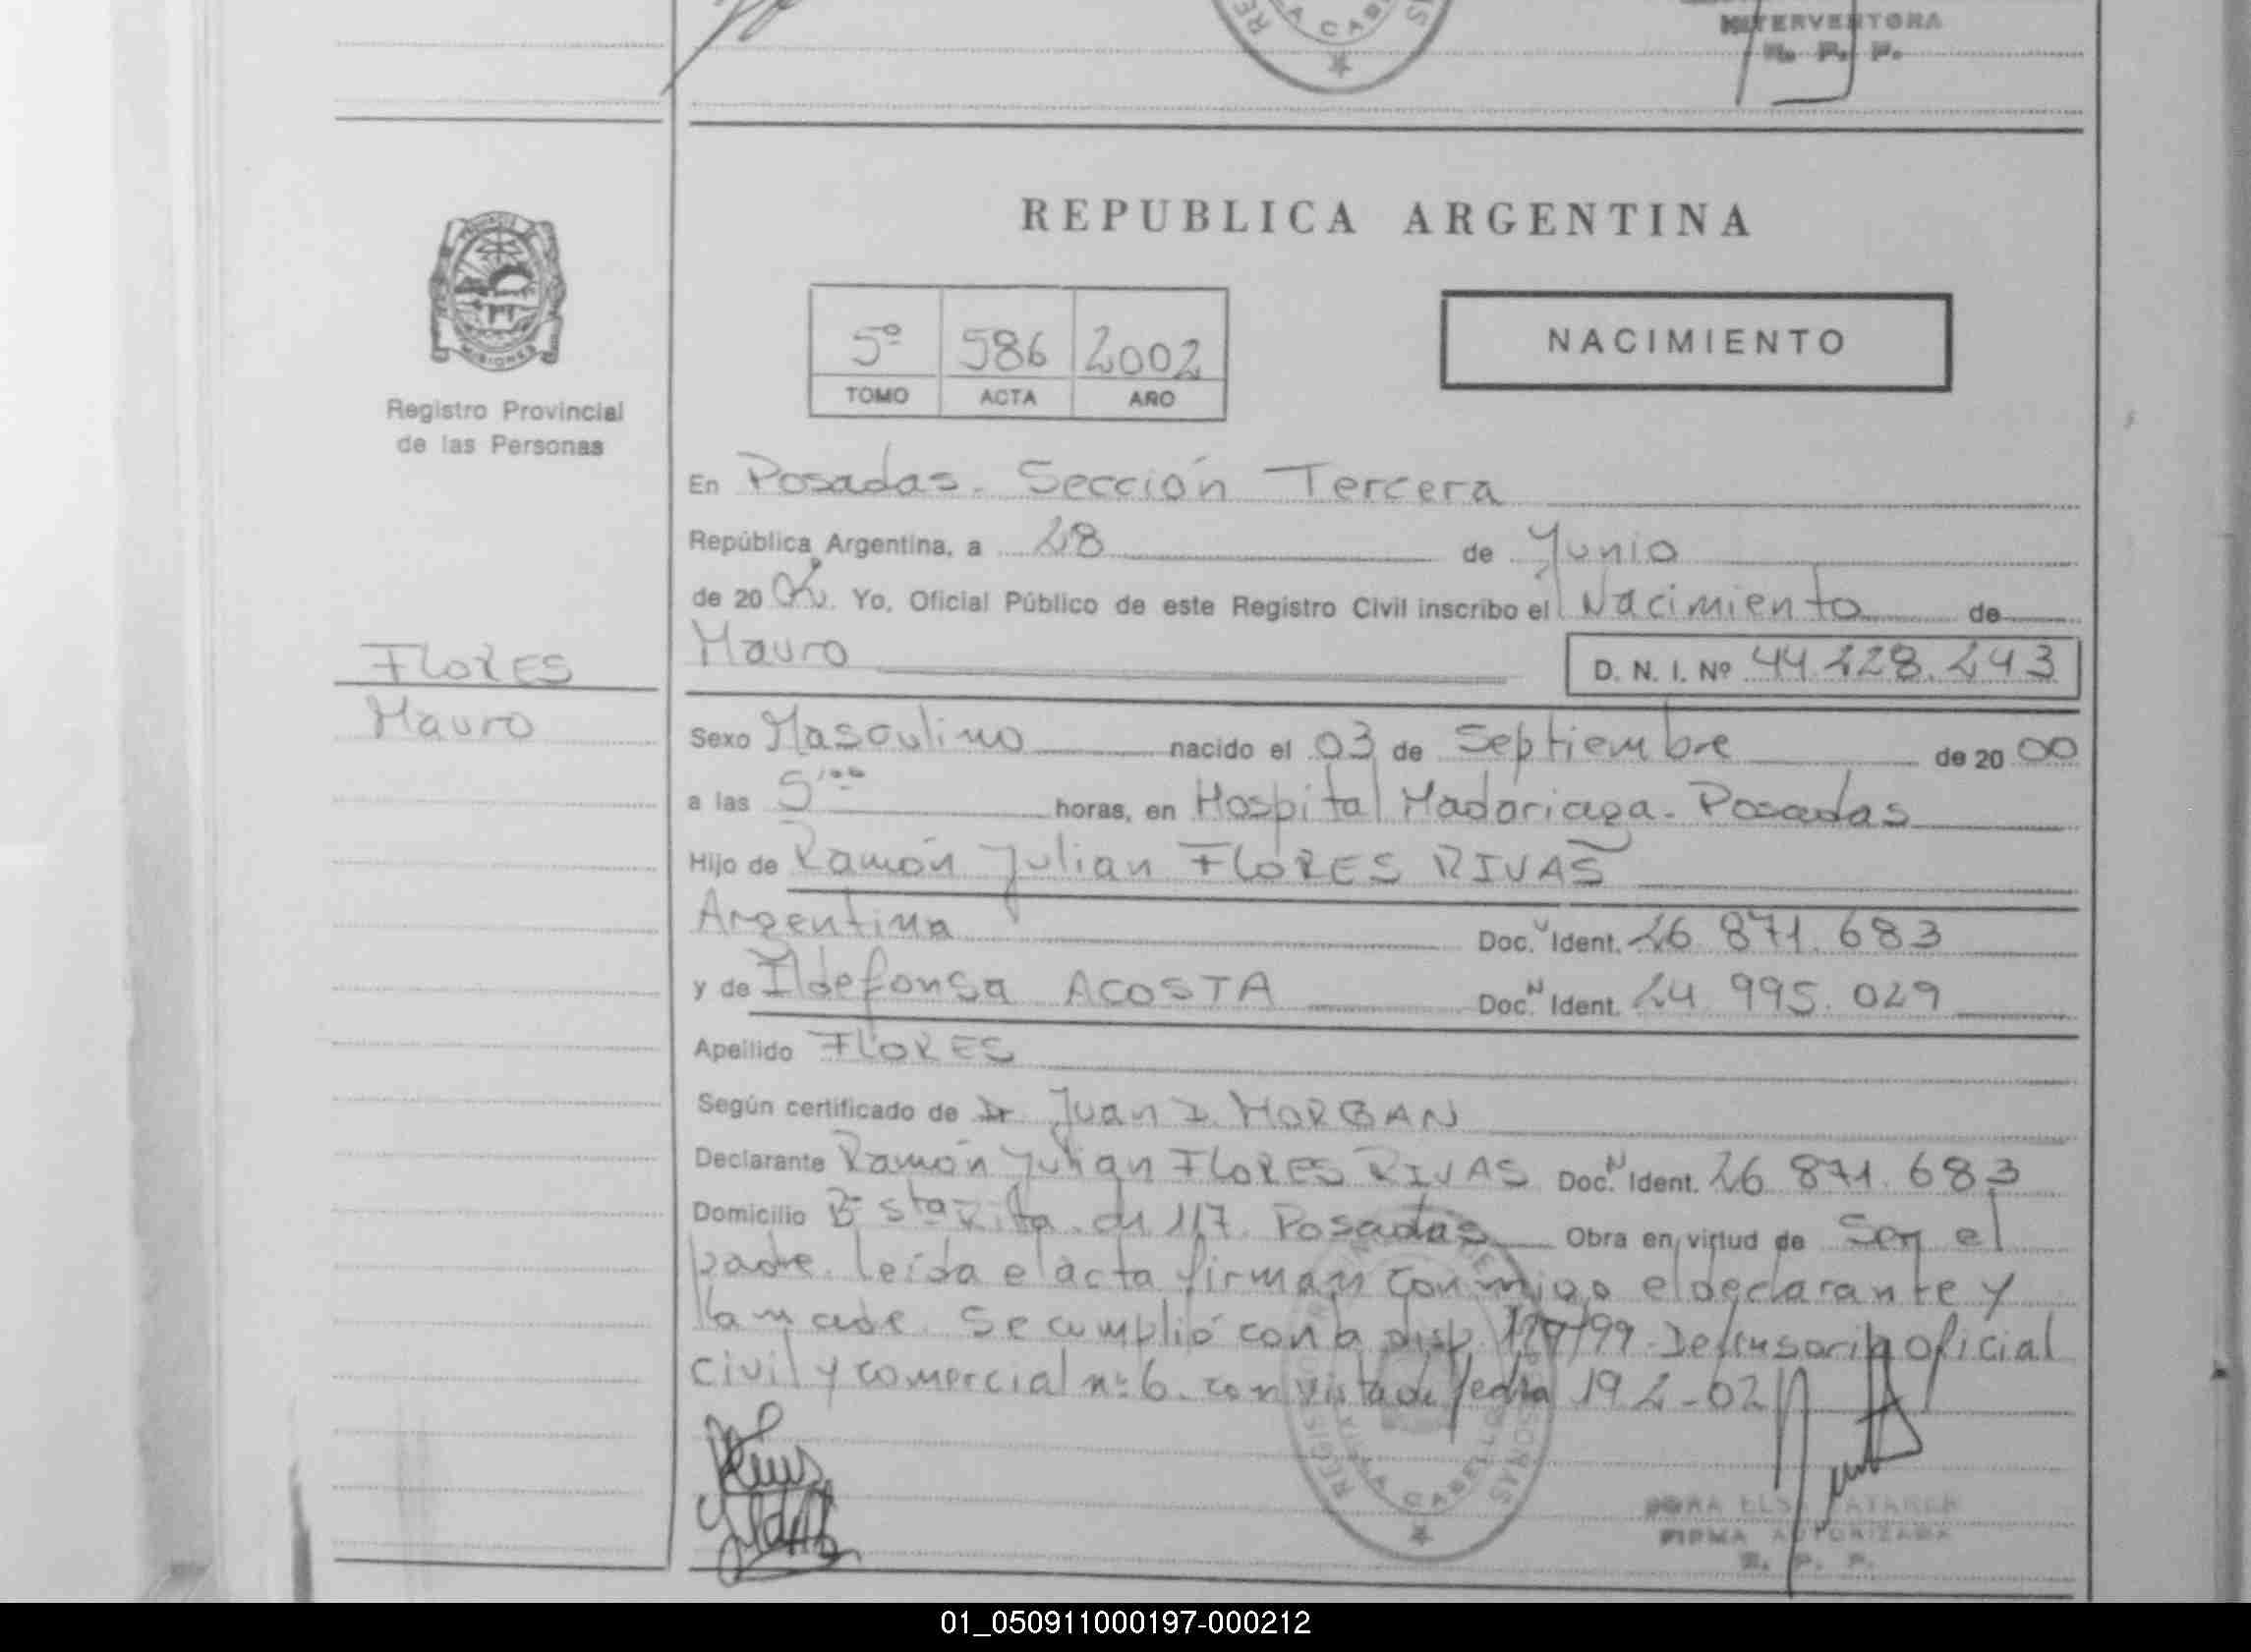 INTERVENTORA
R. P. P.
REPUBLICA ARGENTINA
5º 586 2002
TOMO ACTA AÑO
NACIMIENTO
MISIONES
Registro Provincial
de las Personas
En Posadas. Sección Tercera
República Argentina, a 28 de Junio
de 20 02. Yo, Oficial Público de este Registro Civil inscribo el Nacimiento de
FLORES
Mauro
Mauro D. N. I. Nº 44.228.243
Sexo Masculino nacido el 03 de Septiembre de 20 00
a las 5,00 horas, en Hospital Madariaga. Posadas
Hijo de Ramón Julian FLORES RIVAS
Argentina Doc. Ident. 26 871. 683
y de Ildefonsa ACOSTA Doc. N Ident. 24 995. 029
Apellido FLORES
Según certificado de Dr Juan I. MORBAN
Declarante Ramón Julian FLORES RIVAS Doc. N Ident. 26 871. 683
Domicilio Bº Sta Rita. ch 117. Posadas Obra en virtud de Ser el
padre. leída el acta firman conmigo el declarante y
la madre. Se cumplió con la disp. 129/99. Defensoria oficial
civil y comercial nº 6. con vista de fecha 19 2-02
FIRMA AUTORIZADA
R. P. P.
01_050911000197-000212